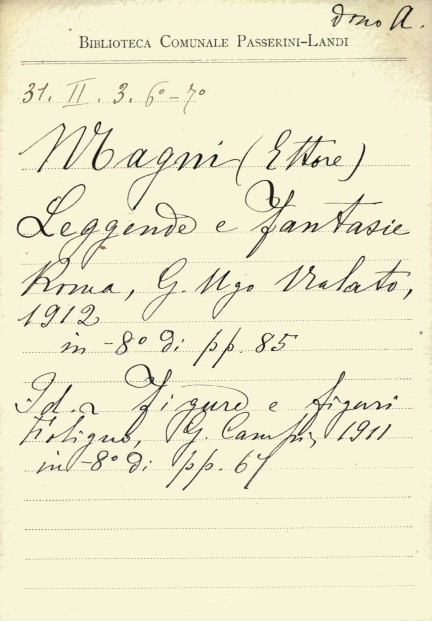 dono A.
BIBLIOTECA COMUNALE PASSERINI-LANDI
31. II. 3. 6º-7º
Magni (Ettore)
Leggende e fantasie
Roma, G. Ugo Nalato,
1912
in-8º di pp. 85
Id. Figure e figuri
Foligno, G. Campi, 1911
in-8º di pp. 67